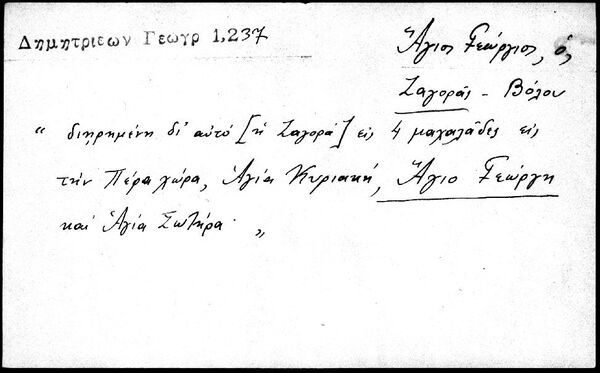 Δημητριεων Γεωγρ 1,237
Ἅγιος Γεώργιος, ὁ,
Ζαγορᾶς - Βόλου
“ διῃρημένη δι' αὐτό [ἡ Ζαγορά] εἰς 4 μαχαλάδες εἰς
τήν Πέρα χώρα, Ἁγία Κυριακή, Ἅγιο Γεώργη
καί Ἁγία Σωτήρα· „